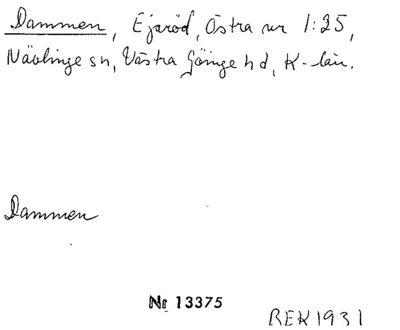 Dammen, Ejaröd, Östra nr 1:25,
Nävlinge sn, Västra Göinge hd, K-län.
Dammen
Nr 13375
BEK 1931